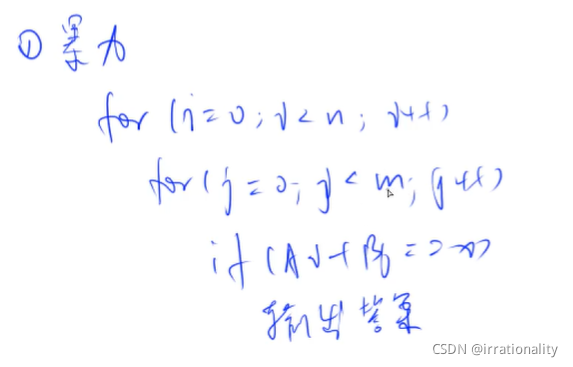 ① 暴力
for (i = 0; i < n; i++)
for (j = 0; j < m; j++)
if (Ai + Bj == x)
输出答案
CSDN @irrationality